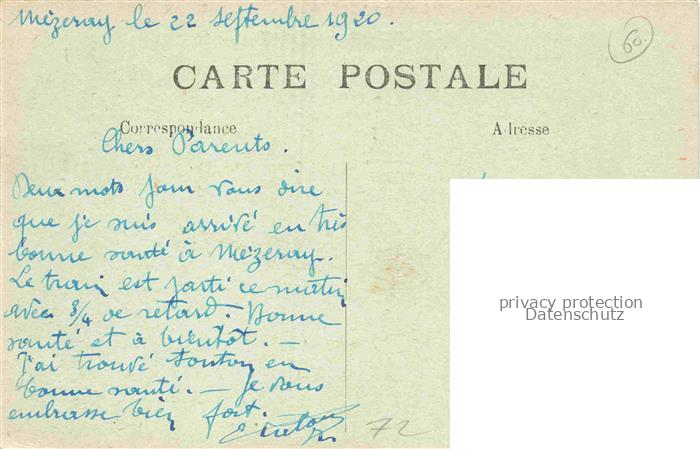 Mézeray le 22 septembre 1920.
60.
CARTE POSTALE
Correspondance
Adresse
Chers Parents.
Deux mots pour vous dire
que je suis arrivé en très
bonne santé à Mézeray.
Le train est parti ce matin
avec 3/4 de retard. Bonne
santé et à bientôt. —
J'ai trouvé tonton en
bonne santé. — Je vous
embrasse bien fort.
72
privacy protection
Datenschutz